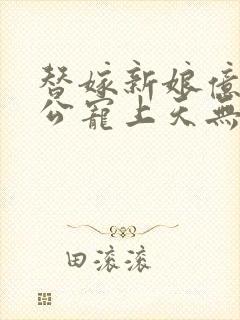 替嫁新娘億
公寵上天無
田滚滚